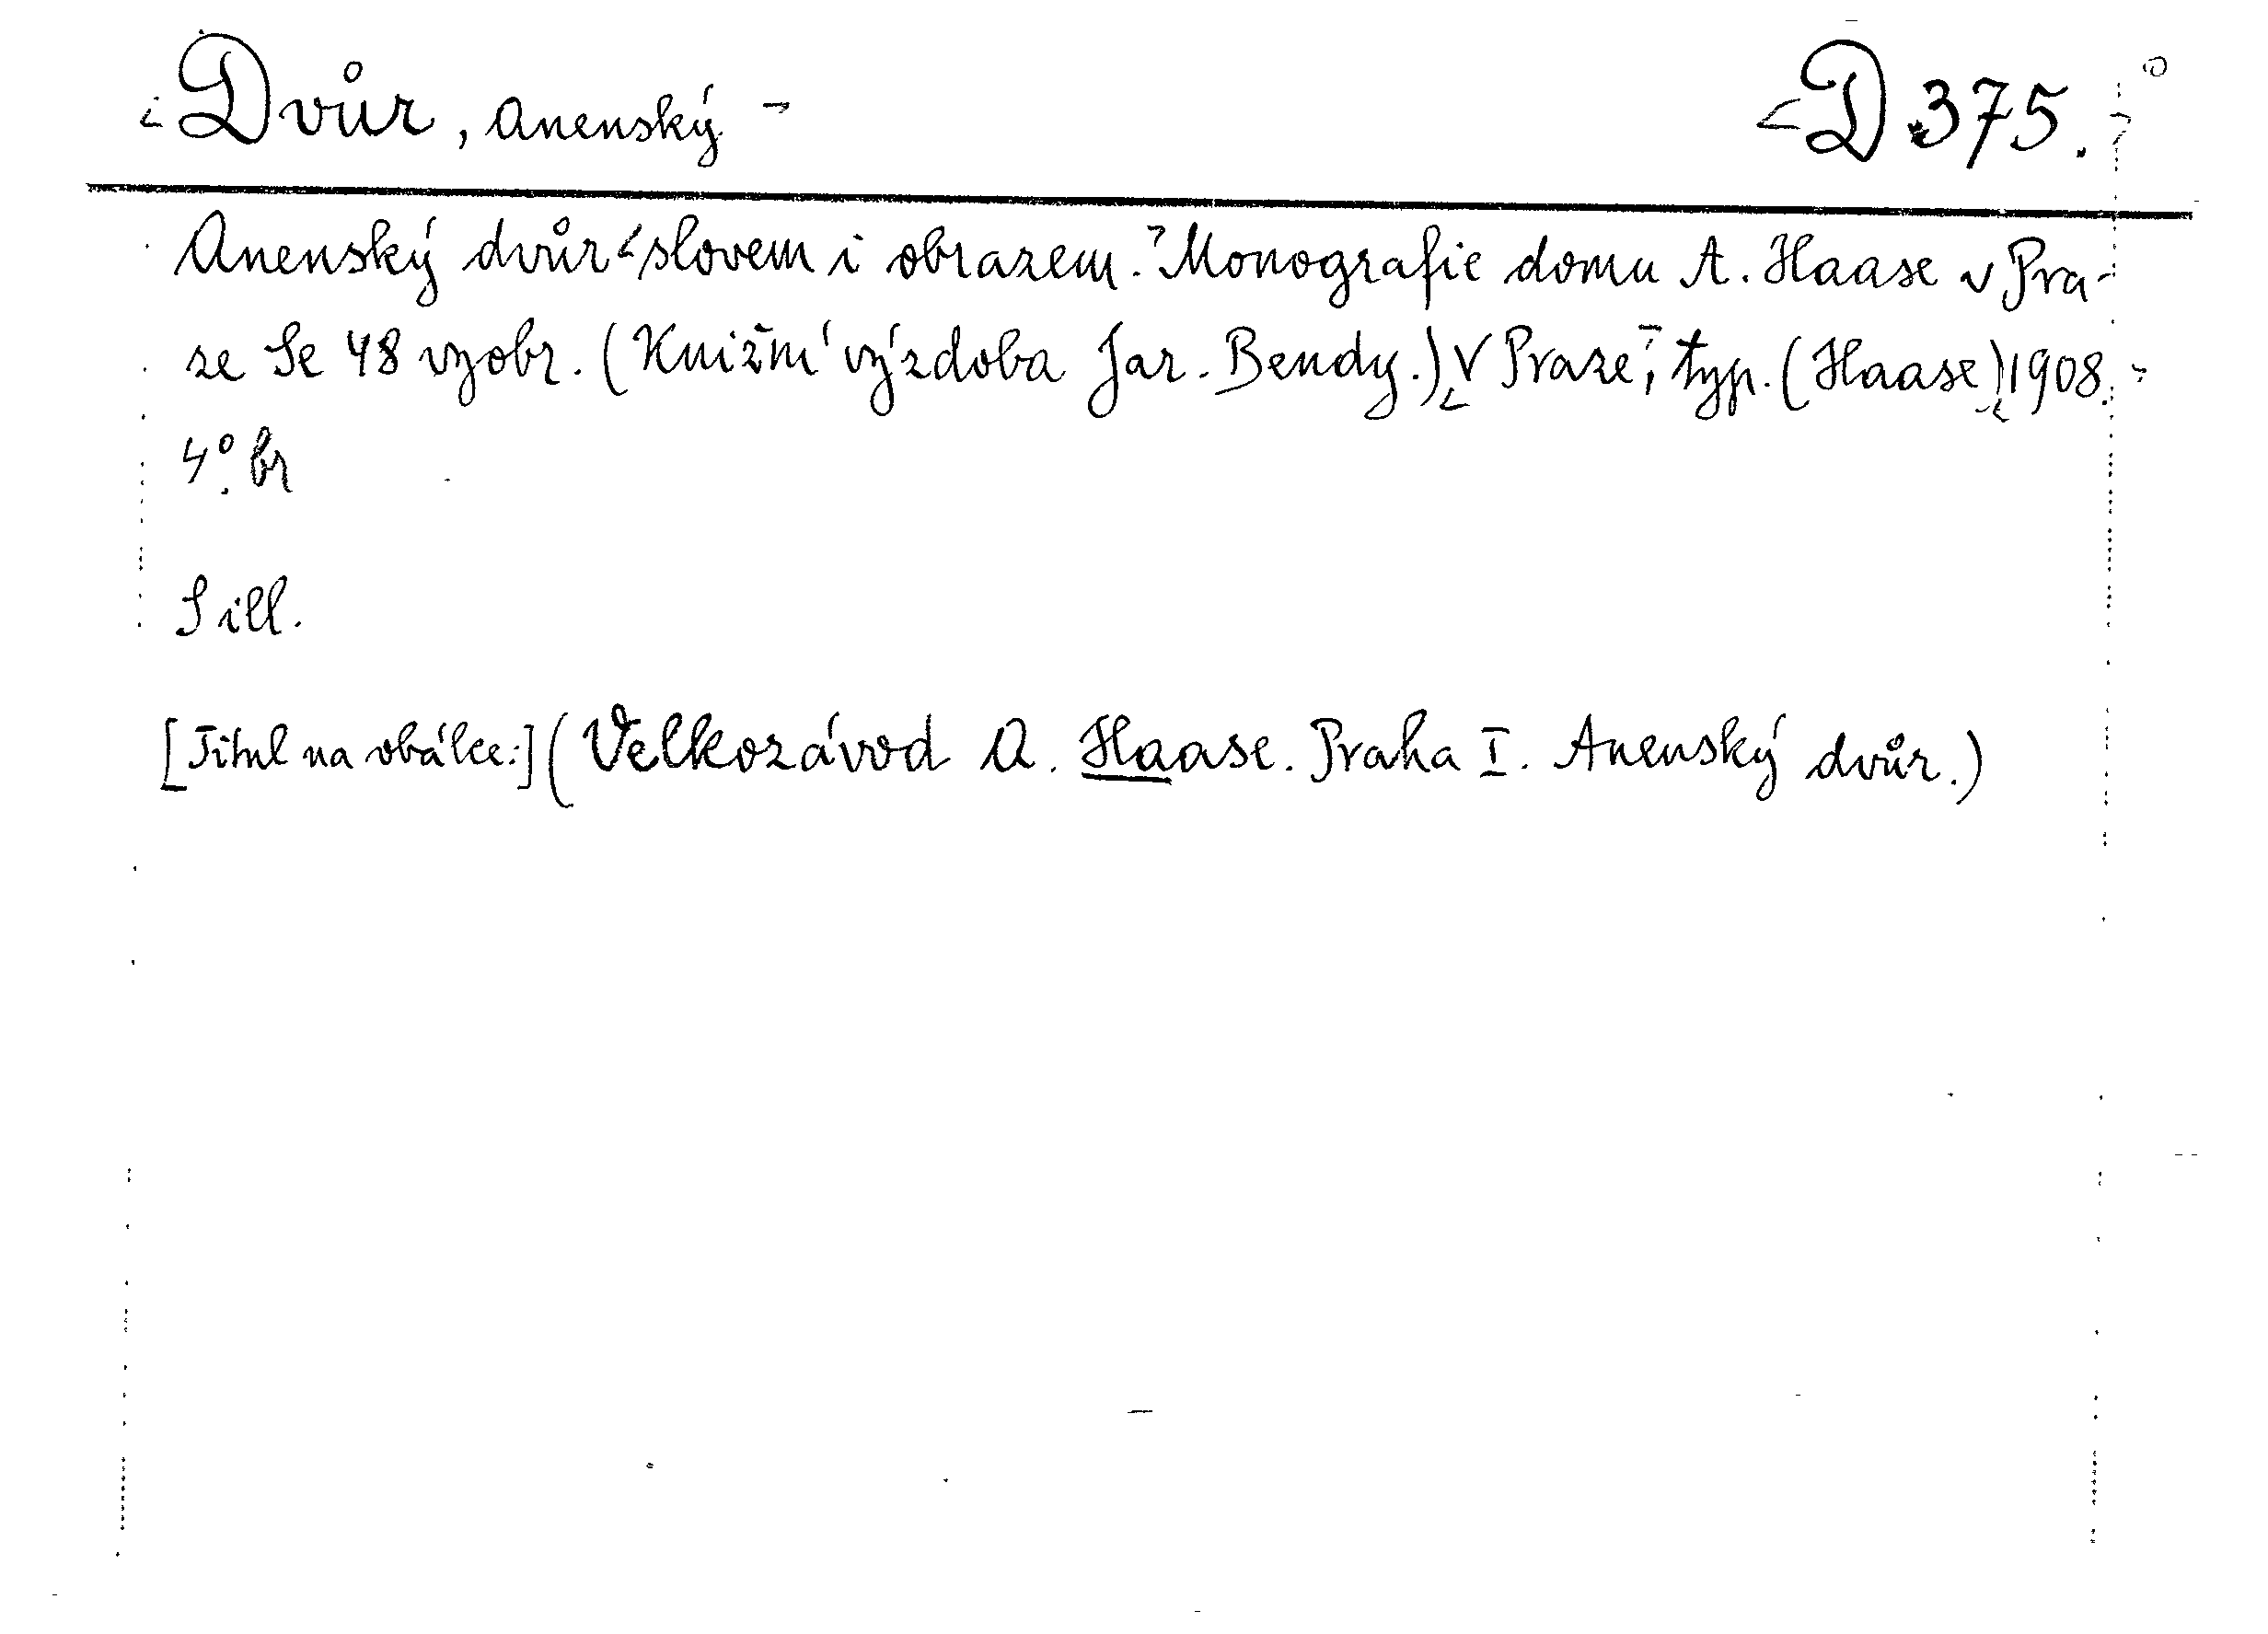 Dvůr, Anenský D 375.
Anenský dvůr slovem i obrazem. Monografie domu A. Haase v Pra-
ze Se 48 vyobr. (Knižní výzdoba Jar. Bendy.) V Praze, typ. (Haase) 1908.
4° br
S ill.
[Titul na obálce:] (Velkozávod A. Haase. Praha I. Anenský dvůr.)